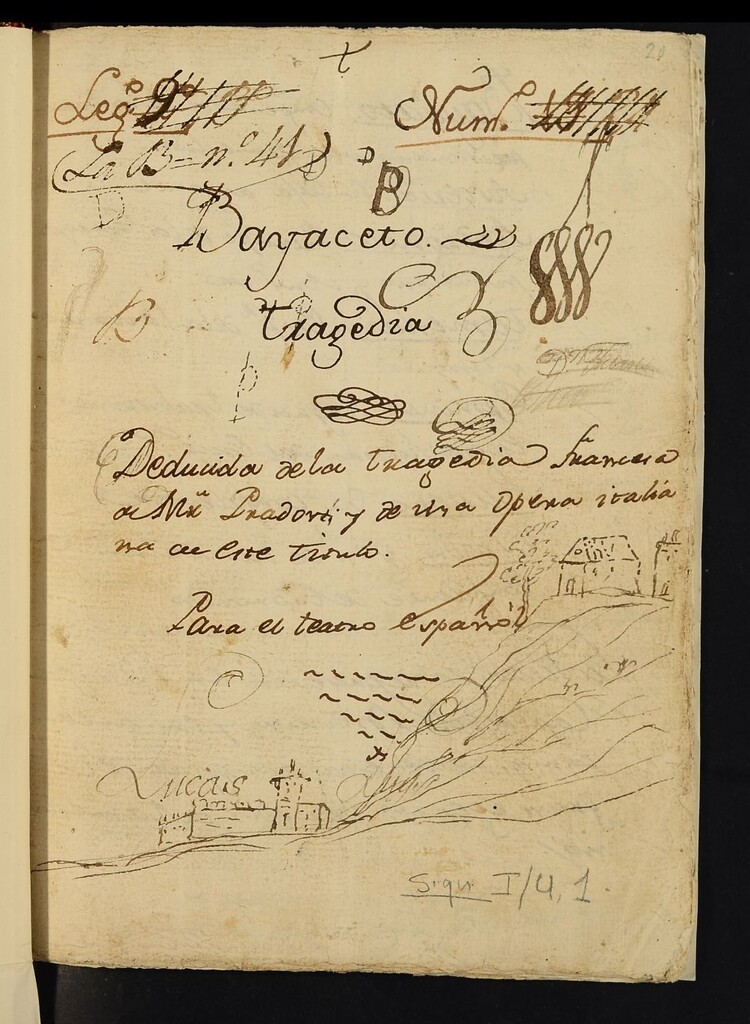 20
Leg.º
Num.º
La B = n.º 41
D
B
D
Bayaceto.
B
tragedia
Deducida de la tragedia francesa
de Mr. Pradon, y de una opera italia
na de este titulo.
Para el teatro español
Lucas
Sign. I/4, 1.